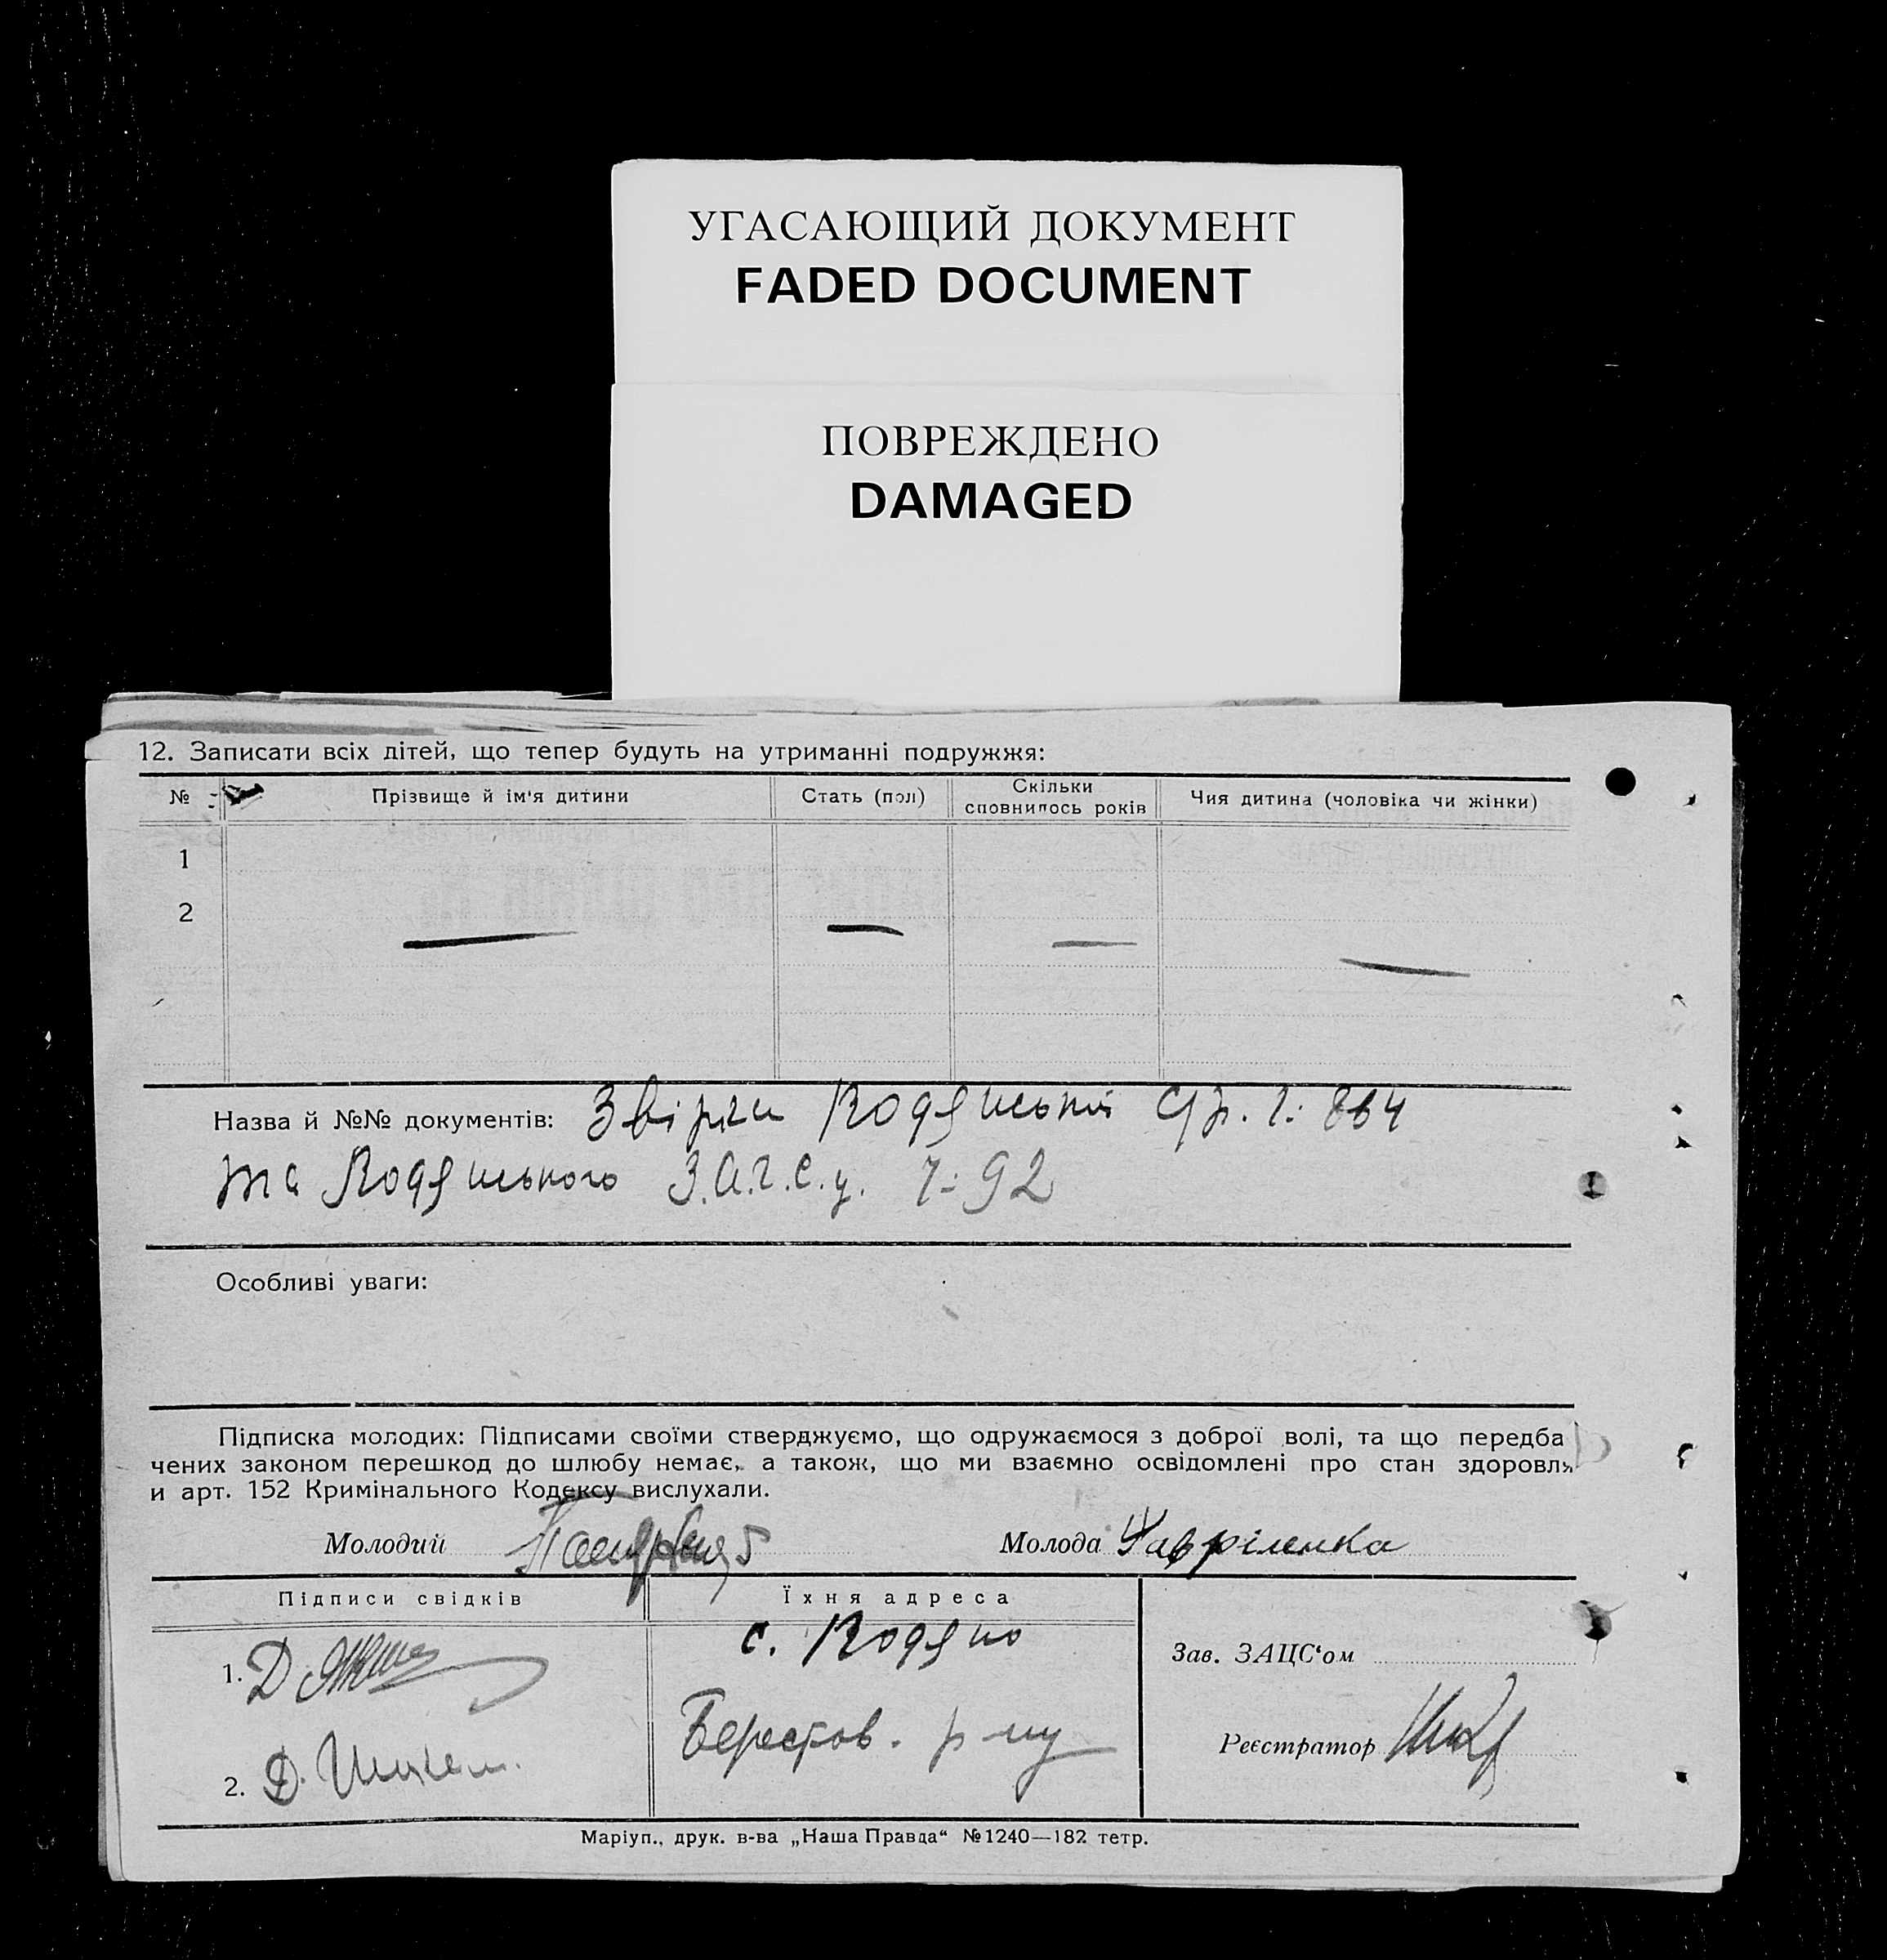 УГАСАЮЩИЙ ДОКУМЕНТ
FADED DOCUMENT
ПОВРЕЖДЕНО
DAMAGED
12. Записати всіх дітей, що тепер будуть на утриманні подружжя:
№ Прізвище й ім'я дитини Стать (пол) Скільки сповнилось років Чия дитина (чоловіка чи жінки)
1
2
Назва й №№ документів:
та З.А.Г.С.у. 92
Особливі уваги:
Підписка молодих: Підписами своїми стверджуємо, що одружаємося з доброї волі, та що передба
чених законом перешкод до шлюбу немає, а також, що ми взаємно освідомлені про стан здоровля
и арт. 152 Кримінального Кодексу вислухали.
Молодий Молода Гавріленка
Підписи свідків Їхня адреса
с.
1. Д. Зав. ЗАЦС'ом
Берестов. р-ну
Реєстратор
2. Д.
Маріуп., друк. в-ва „Наша Правда“ №1240—182 тетр.